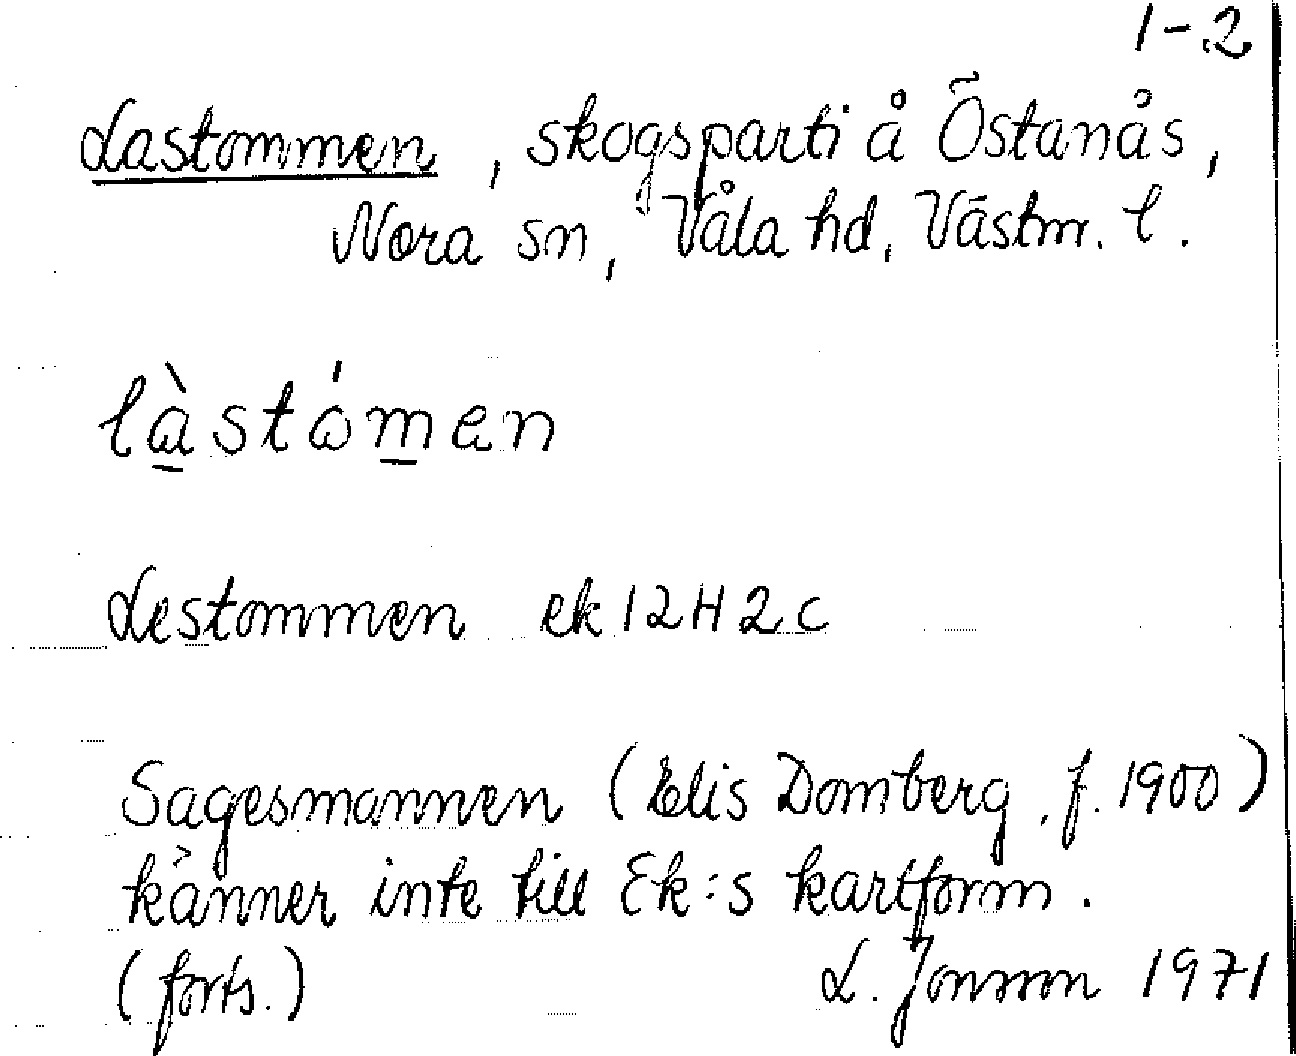 1-2
Lastommen, skogsparti å Östanås,
Nora sn, Våla hd, Västm. l.
làstómen
Lestommen ek 12H2c
Sagesmannen (Elis Domberg, f. 1900)
känner inte till Ek:s kartform.
(forts.) L. Jonsson 1971